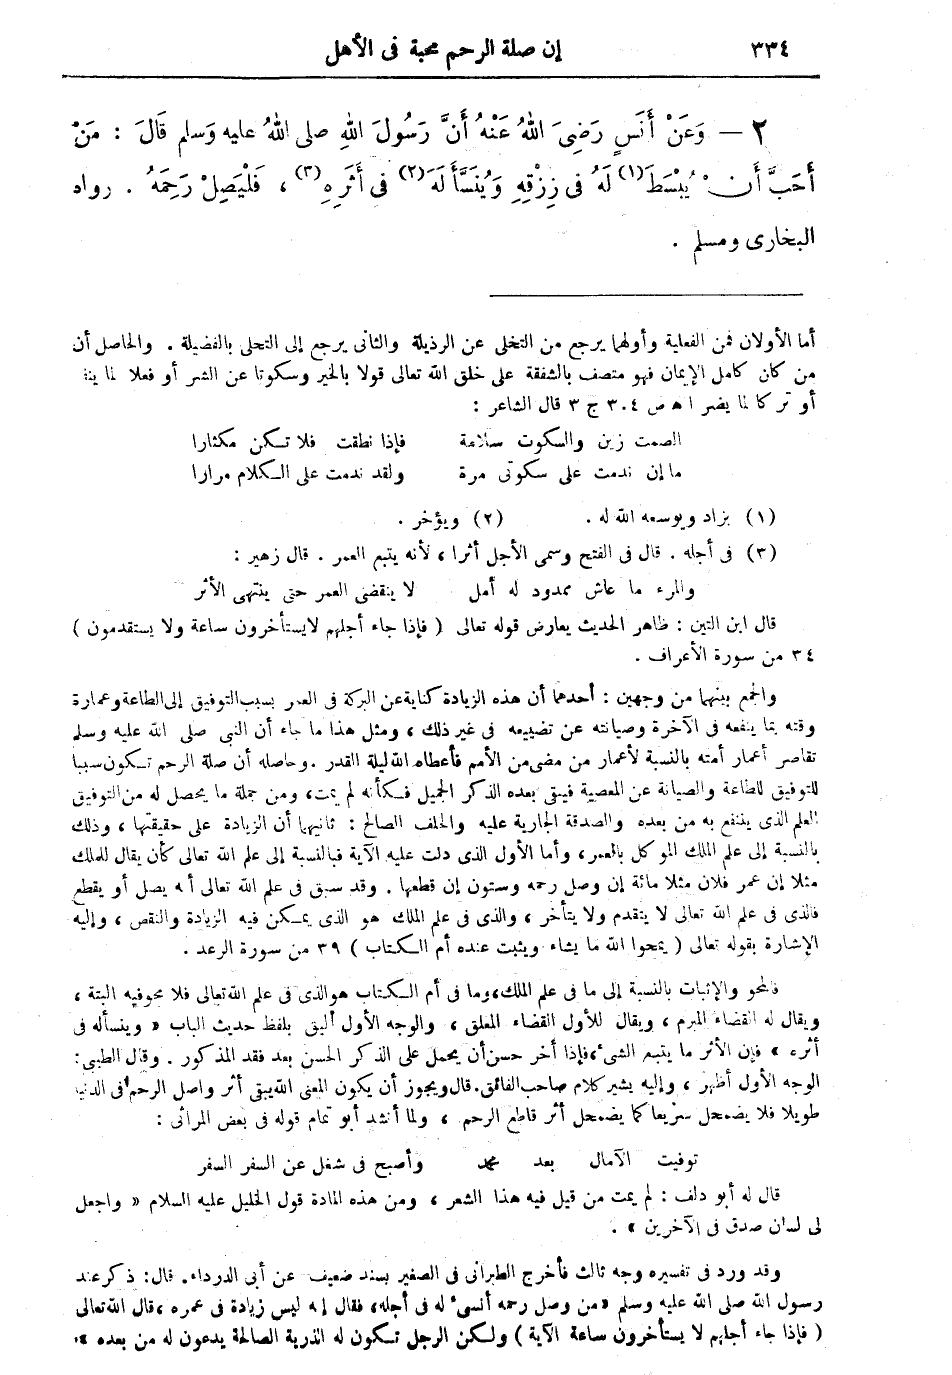 ٣٣٤ إن صلة الرحم محبة فى الأهل
٢ — وَعَنْ أَنَسٍ رَضِىَ اللهُ عَنْهُ أَنَّ رَسُولَ اللهِ صلى اللهُ عليه وَسلم قَالَ : مَنْ
أَحَبَّ أَنْ يُبْسَطَ (١) لَهُ فى رِزْقِهِ وَيُنْسَأَ لَهُ (٢) فى أَثَرِهِ (٣) ، فَلْيَصِلْ رَحِمَهُ . رواه
البخارى ومسلم .
أما الأولان فمن الفعلية وأولهما يرجع من التخلى عن الرذيلة والثانى يرجع إلى التحلى بالفضيلة . والحاصل أن
من كان كامل الإيمان فهو متصف بالشفقة على خلق الله تعالى قولا بالخير وسكوتا عن الشر أو فعلا لما ينفع
أو تركا لما يضر اهـ ص ٣٠٤ ج ٣ قال الشاعر :
الصمت زين والسكوت سلامة فإذا نطقت فلا تكن مكثارا
ما إن ندمت على سكوتى مرة ولقد ندمت على الكلام مرارا
(١) يزاد ويوسعه الله له . (٢) ويؤخر .
(٣) فى أجله . قال فى الفتح وسمى الأجل أثرا ، لأنه يتبع العمر . قال زهير :
والمرء ما عاش ممدود له أمل لا ينقضى العمر حتى ينتهى الأثر
قال ابن التين : ظاهر الحديث يعارض قوله تعالى ( فإذا جاء أجلهم لايستأخرون ساعة ولا يستقدمون )
٣٤ من سورة الأعراف .
والجمع بينهما من وجهين : أحدهما أن هذه الزيادة كناية عن البركة فى العمر بسبب التوفيق إلى الطاعة وعمارة
وقته بما ينفعه فى الآخرة وصيانته عن تضييعه فى غير ذلك ، ومثل هذا ما جاء أن النبى صلى الله عليه وسلم
تقاصر أعمار أمته بالنسبة لأعمار من مضى من الأمم فأعطاه الله ليلة القدر . وحاصله أن صلة الرحم تكون سببا
للتوفيق للطاعة والصيانة عن المعصية فيبقى بعده الذكر الجميل فكأنه لم يمت، ومن جملة ما يحصل له من التوفيق
العلم الذى ينتفع به من بعده والصدقة الجارية عليه والخلف الصالح : ثانيهما أن الزيادة على حقيقتها ، وذلك
بالنسبة إلى علم الملك الموكل بالعمر، وأما الأول الذى دلت عليه الآية فبالنسبة إلى علم الله تعالى كأن يقال للملك
مثلا إن عمر فلان مثلا مائة إن وصل رحمه وستون إن قطعها . وقد سبق فى علم الله تعالى أنه يصل أو يقطع
فالذى فى علم الله تعالى لا يتقدم ولا يتأخر ، والذى فى علم الملك هو الذى يمكن فيه الزيادة والنقص ، وإليه
الإشارة بقوله تعالى ( يمحوا الله ما يشاء ويثبت عنده أم الكتاب ) ٣٩ من سورة الرعد .
فالمحو والإثبات بالنسبة إلى ما فى علم الملك، وما فى أم الكتاب هو الذى فى علم الله تعالى فلا محو فيه البتة ،
ويقال له القضاء المبرم ، ويقال للأول القضاء المعلق ، والوجه الأول أليق بلفظ حديث الباب « وينسأله فى
أثره » فإن الأثر ما يتبع الشىء، فإذا أخر حسن أن يحمل على الذكر الحسن بعد فقد المذكور . وقال الطيبى :
الوجه الأول أظهر ، وإليه يشير كلام صاحب الفائق. قال ويجوز أن يكون المعنى الله يبقى أثر واصل الرحم فى الدنيا
طويلا فلا يضمحل سريعا كما يضمحل أثر قاطع الرحم ، ولما أنشد أبو تمام قوله فى بعض المراثى :
توفيت الآمال بعد محمد وأصبح فى شغل عن السفر السفر
قال له أبو دلف : لم يمت من قيل فيه هذا الشعر ، ومن هذه المادة قول الخليل عليه السلام « واجعل
لى لسان صدق فى الآخرين » .
وقد ورد فى تفسيره وجه ثالث فأخرج الطبرانى فى الصغير بسند ضعيف عن أبى الدرداء. قال: ذكر عند
رسول الله صلى الله عليه وسلم «من وصل رحمه أنسىء له فى أجله، فقال إنه ليس زيادة فى عمره ، قال الله تعالى
( فإذا جاء أجلهم لا يستأخرون ساعة الآية ) ولكن الرجل تكون له الذرية الصالحة يدعون له من بعده »